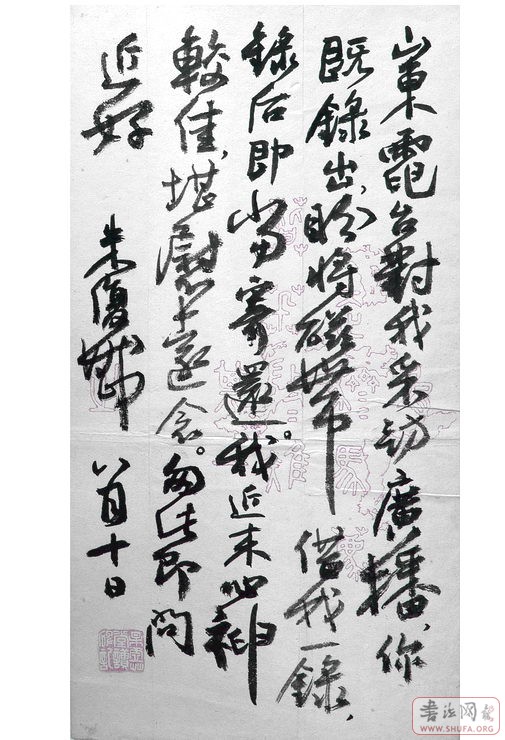 山東電台對我采訪廣播,你
既錄出,盼將磁帶借我一錄,
錄后即當寄還。我近來心神
較佳,堪慰遠念。匆此即問
近好
朱復戡 八月十日
书法网
WWW.SHUFA.ORG